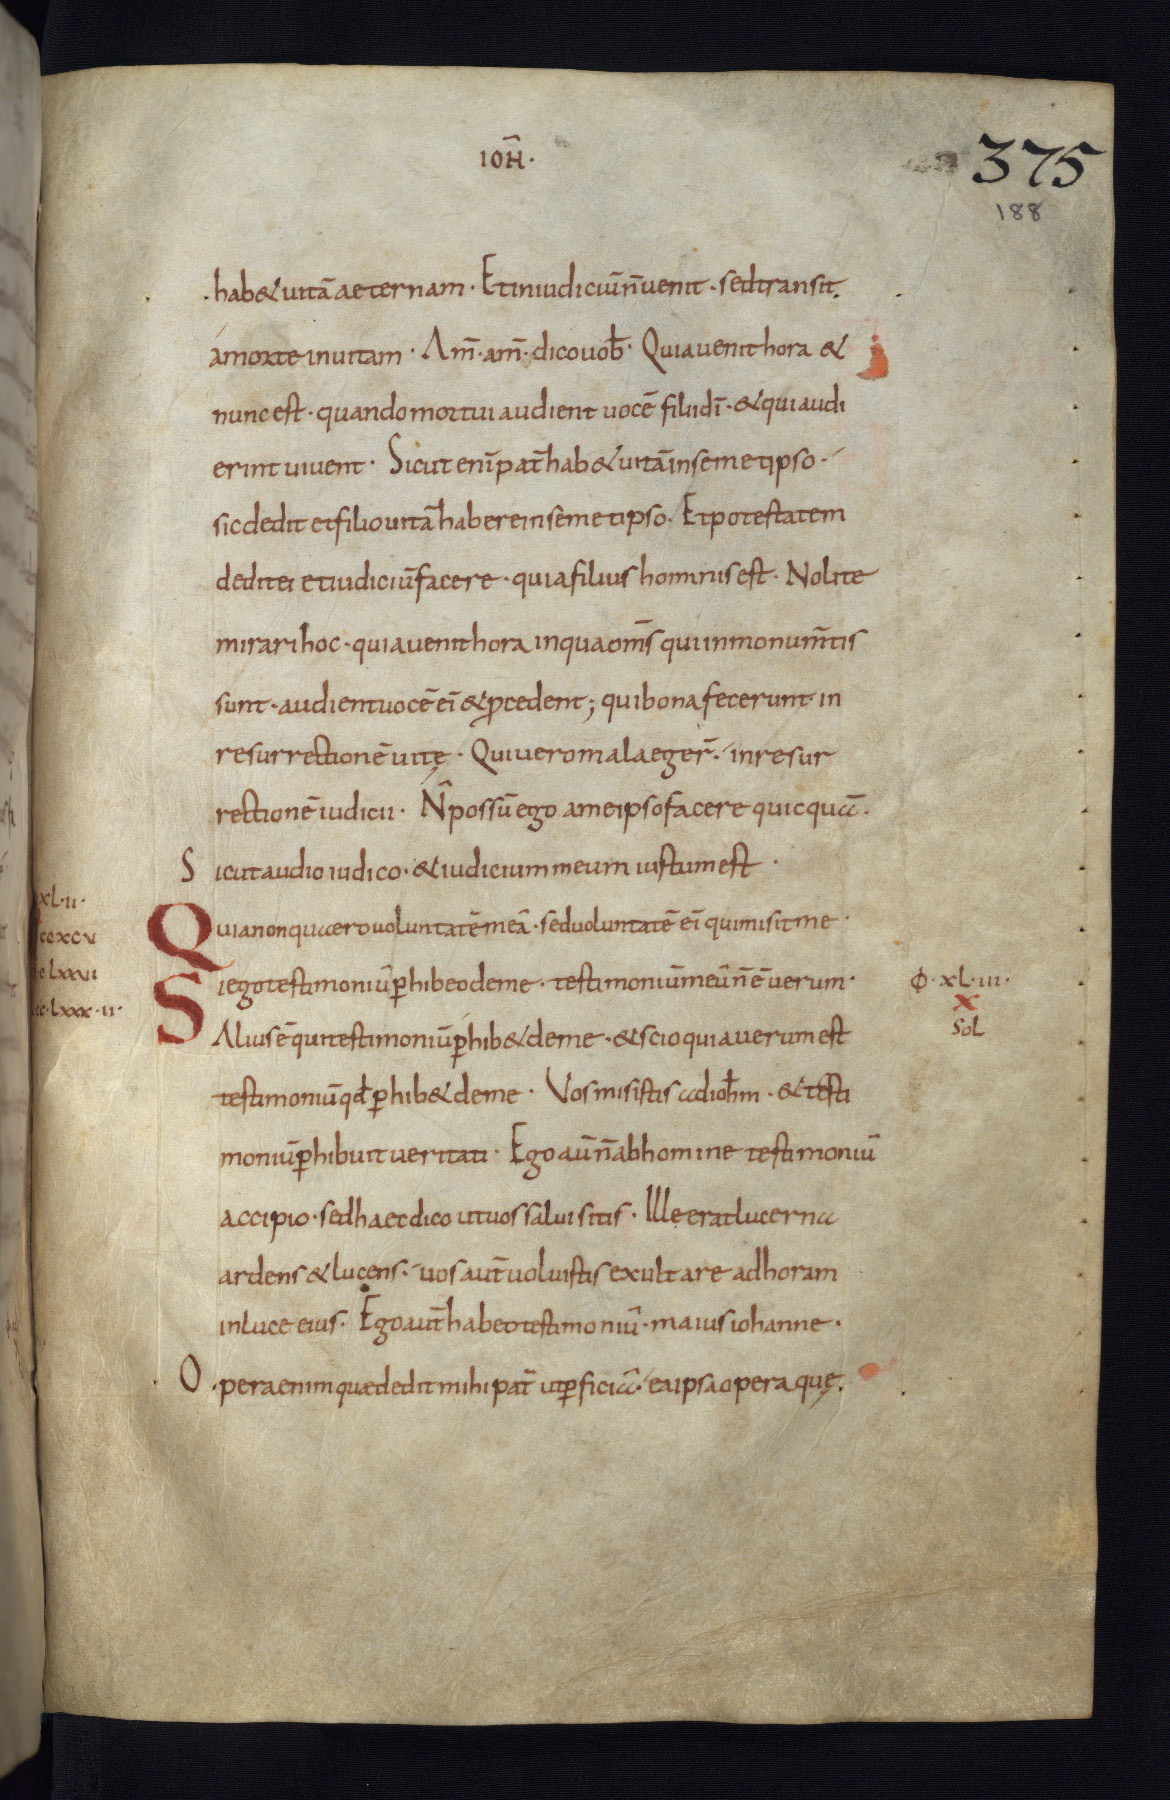 IOH̅·
375
188
hab& uitā aeternam · Et in iudiciū n̄ uenit · sed transit
a morte in uitam · Am̄ · am̄ · dico uob̄ · Quia uenit hora &
nunc est · quando mortui audient uocē filii dī · & qui audi
erint uivent · Sicut enī pat̄ hab& uitā in semetipso ·
sic dedit et filio uitā habere in semetipso · Et potestatem
dedit ei et iudiciū facere · quia filius hominis est · Nolite
mirari hoc · quia uenit hora in qua om̄s qui in monum̄tis
sunt · audient uocē eī & p̄cedent ; qui bona fecerunt in
resurrectionē uitę · Qui uero mala eger̄ · in resur
rectionē iudicii · N̄ possū ego a me ipso facere quicquā ·
Sicut audio iudico · & iudicium meum iustum est ·
Quia non quaero uoluntatē meā · sed uoluntatē eī qui misit me ·
Si ego testimoniū p̄hibeo de me · testimoniū meū n̄ ē uerum ·
Alius ē qui testimoniū p̄hib& de me · & scio quia uerum est
testimoniū qd̄ p̄hib& de me · Vos misistis ad ioh̄m · & testi
moniū p̄hibuit ueritati · Ego aū n̄ ab homine testimoniū
accipio · sed haec dico ut uos salui sitis · Ille erat lucerna
ardens & lucens · uos aut̄ uoluistis exultare ad horam
in luce eius · Ego aut̄ habeo testimoniū · maius iohanne ·
Opera enim quae dedit mihi pat̄ ut p̄ficiā · ea ipsa opera quę
xl·ii·
ccxcv
lxxvii
lxxx·ii·
φ·xl·iii·
x
sol